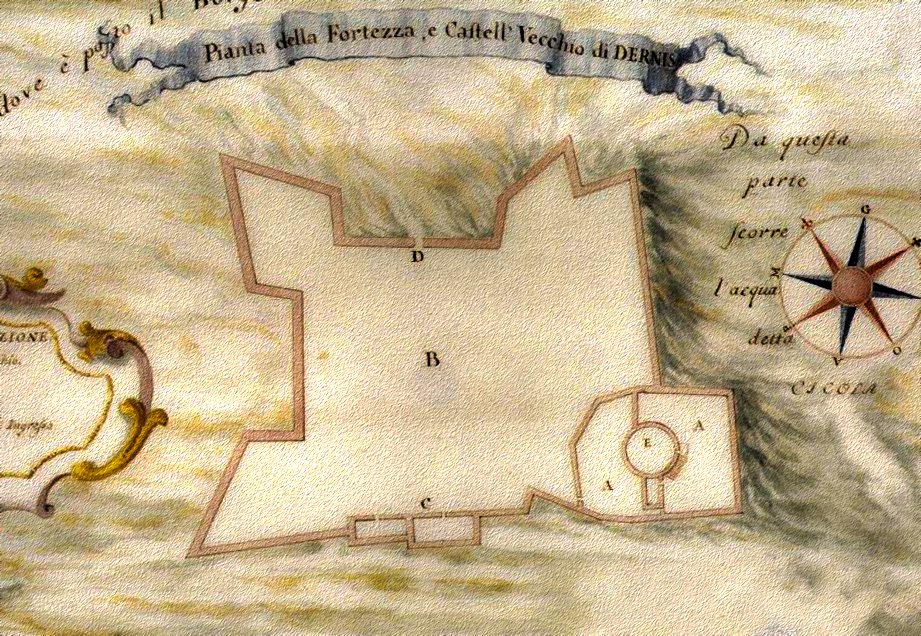 dove è passo il
Pianta della Fortezza, e Castell' Vecchio di DERNIS
Da questa
parte
scorre
l'acqua
detta
CICOLA
G
V
O
D
B
C
E
A
A
ZIONE
Ingresso